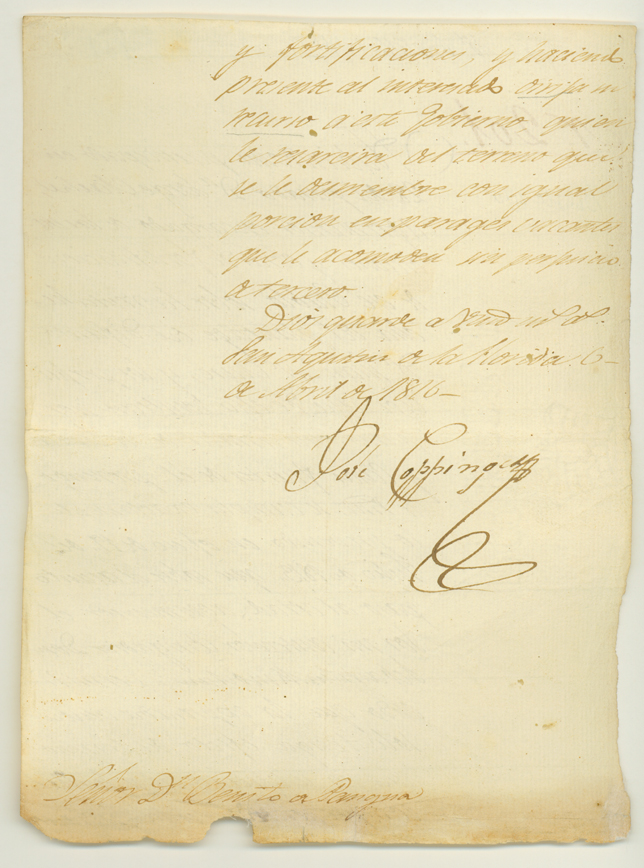 y fortificaciones, y haciend.
presente al interesado dirija su
recurso a este Gobierno quien
le resarcira del terreno que
se le desmembre con igual
porcion en parages vacantes
que le acomoden sin perjuicio
a tercero.
Dios guarde a Vmd ms. as.
San Agustin de la Florida 6
de Abril de 1816
José Coppinger
Señor Dn. Benito de Pangua